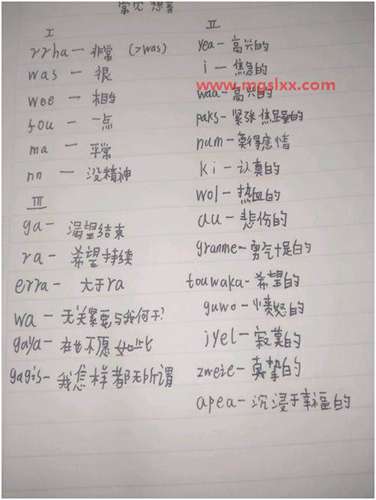 常见想音
I
rrha — 非常 (>was)
was — 很
wee — 相当
fou — 一点
ma — 平常
nn — 没精神
III
ga — 渴望结束
ra — 希望持续
erra — 大于ra
wa — 无关紧要与我何干?
gaya — 在也不愿如此
gagis — 我怎样都无所谓
II
yea — 高兴的
i — 焦急的
www.mgslxx.com
waa — 高兴的
paks — 紧张焦虑的
num — 莫得感情
ki — 认真的
wol — 热血的
au — 悲伤的
granme — 勇气十足的
touwaka — 希望的
guwo — 愤怒的
jyel — 寂寞的
zweie — 真挚的
apea — 沉浸于幸福的